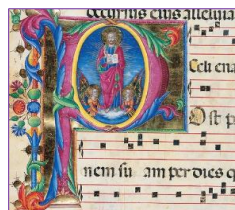 occursus eius alleluia
Celi ena
Ost p
nem su am per dies q